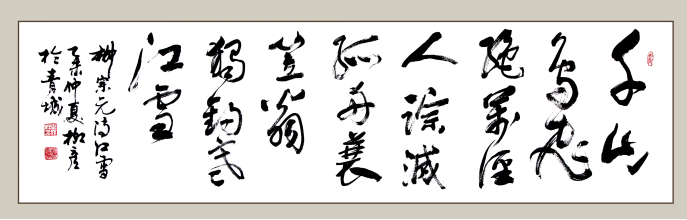 千山
鳥飛
絶萬徑
人踪滅
孤舟蓑
笠翁
獨釣寒
江雪
柳宗元詩江雪
仲夏柳彦
於青城